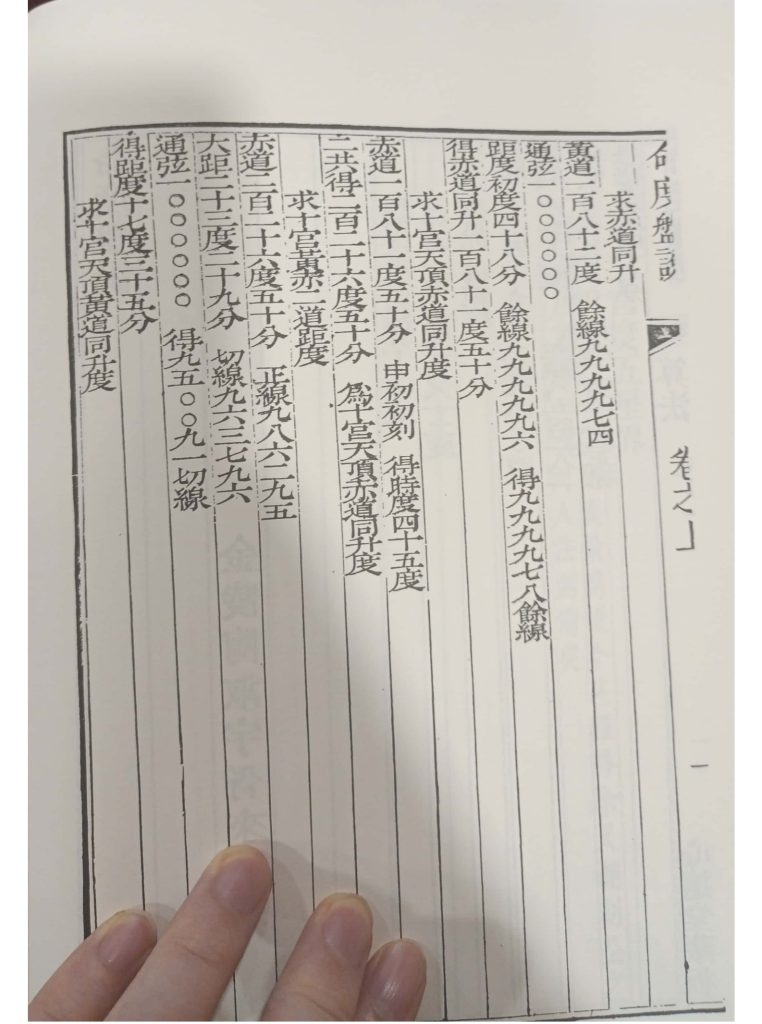 卷之上
一
求赤道同升
黃道一百八十二度　餘線九九九九七四
通弦一〇〇〇〇〇〇
距度初度四十八分　餘線九九九九九六　得九九九九七八餘線
得赤道同升一百八十一度五十分
求十宮天頂赤道同升度
赤道一百八十一度五十分　申初初刻　得時度四十五度
二共得二百二十六度五十分　爲十宮天頂赤道同升度
求十宮黃赤二道距度
赤道二百二十六度五十分　正線九八六二九五
大距二十三度二十九分　切線九六三七九六
通弦一〇〇〇〇〇〇　得九五〇〇九一切線
得距度十七度三十五分
求十宮天頂黃道同升度